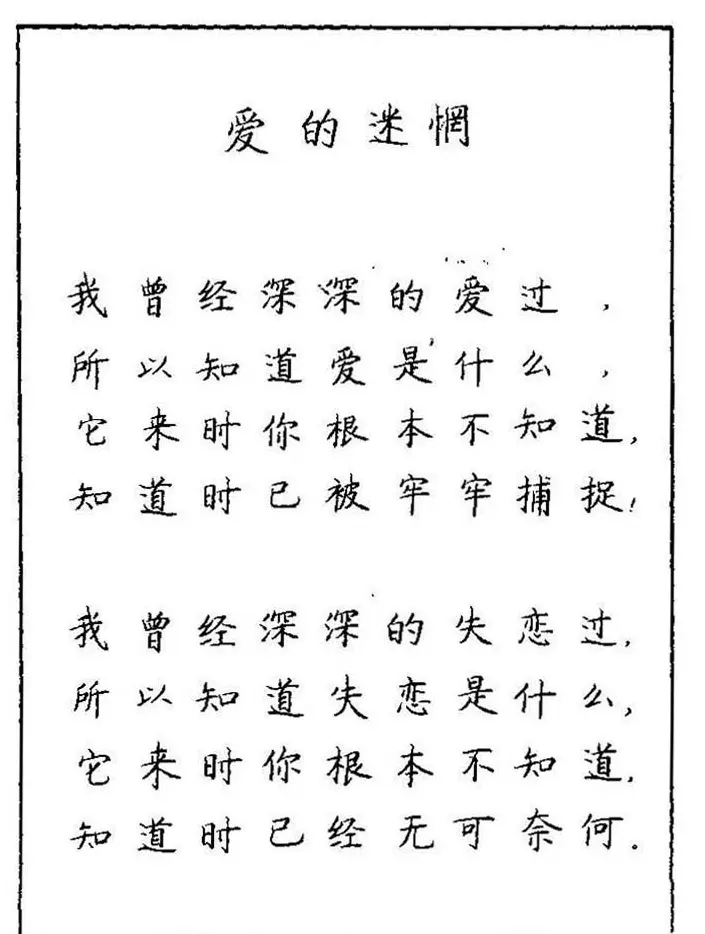 爱的迷惘
我曾经深深的爱过，
所以知道爱是什么，
它来时你根本不知道，
知道时已被牢牢捕捉！
我曾经深深的失恋过，
所以知道失恋是什么，
它来时你根本不知道，
知道时已经无可奈何.